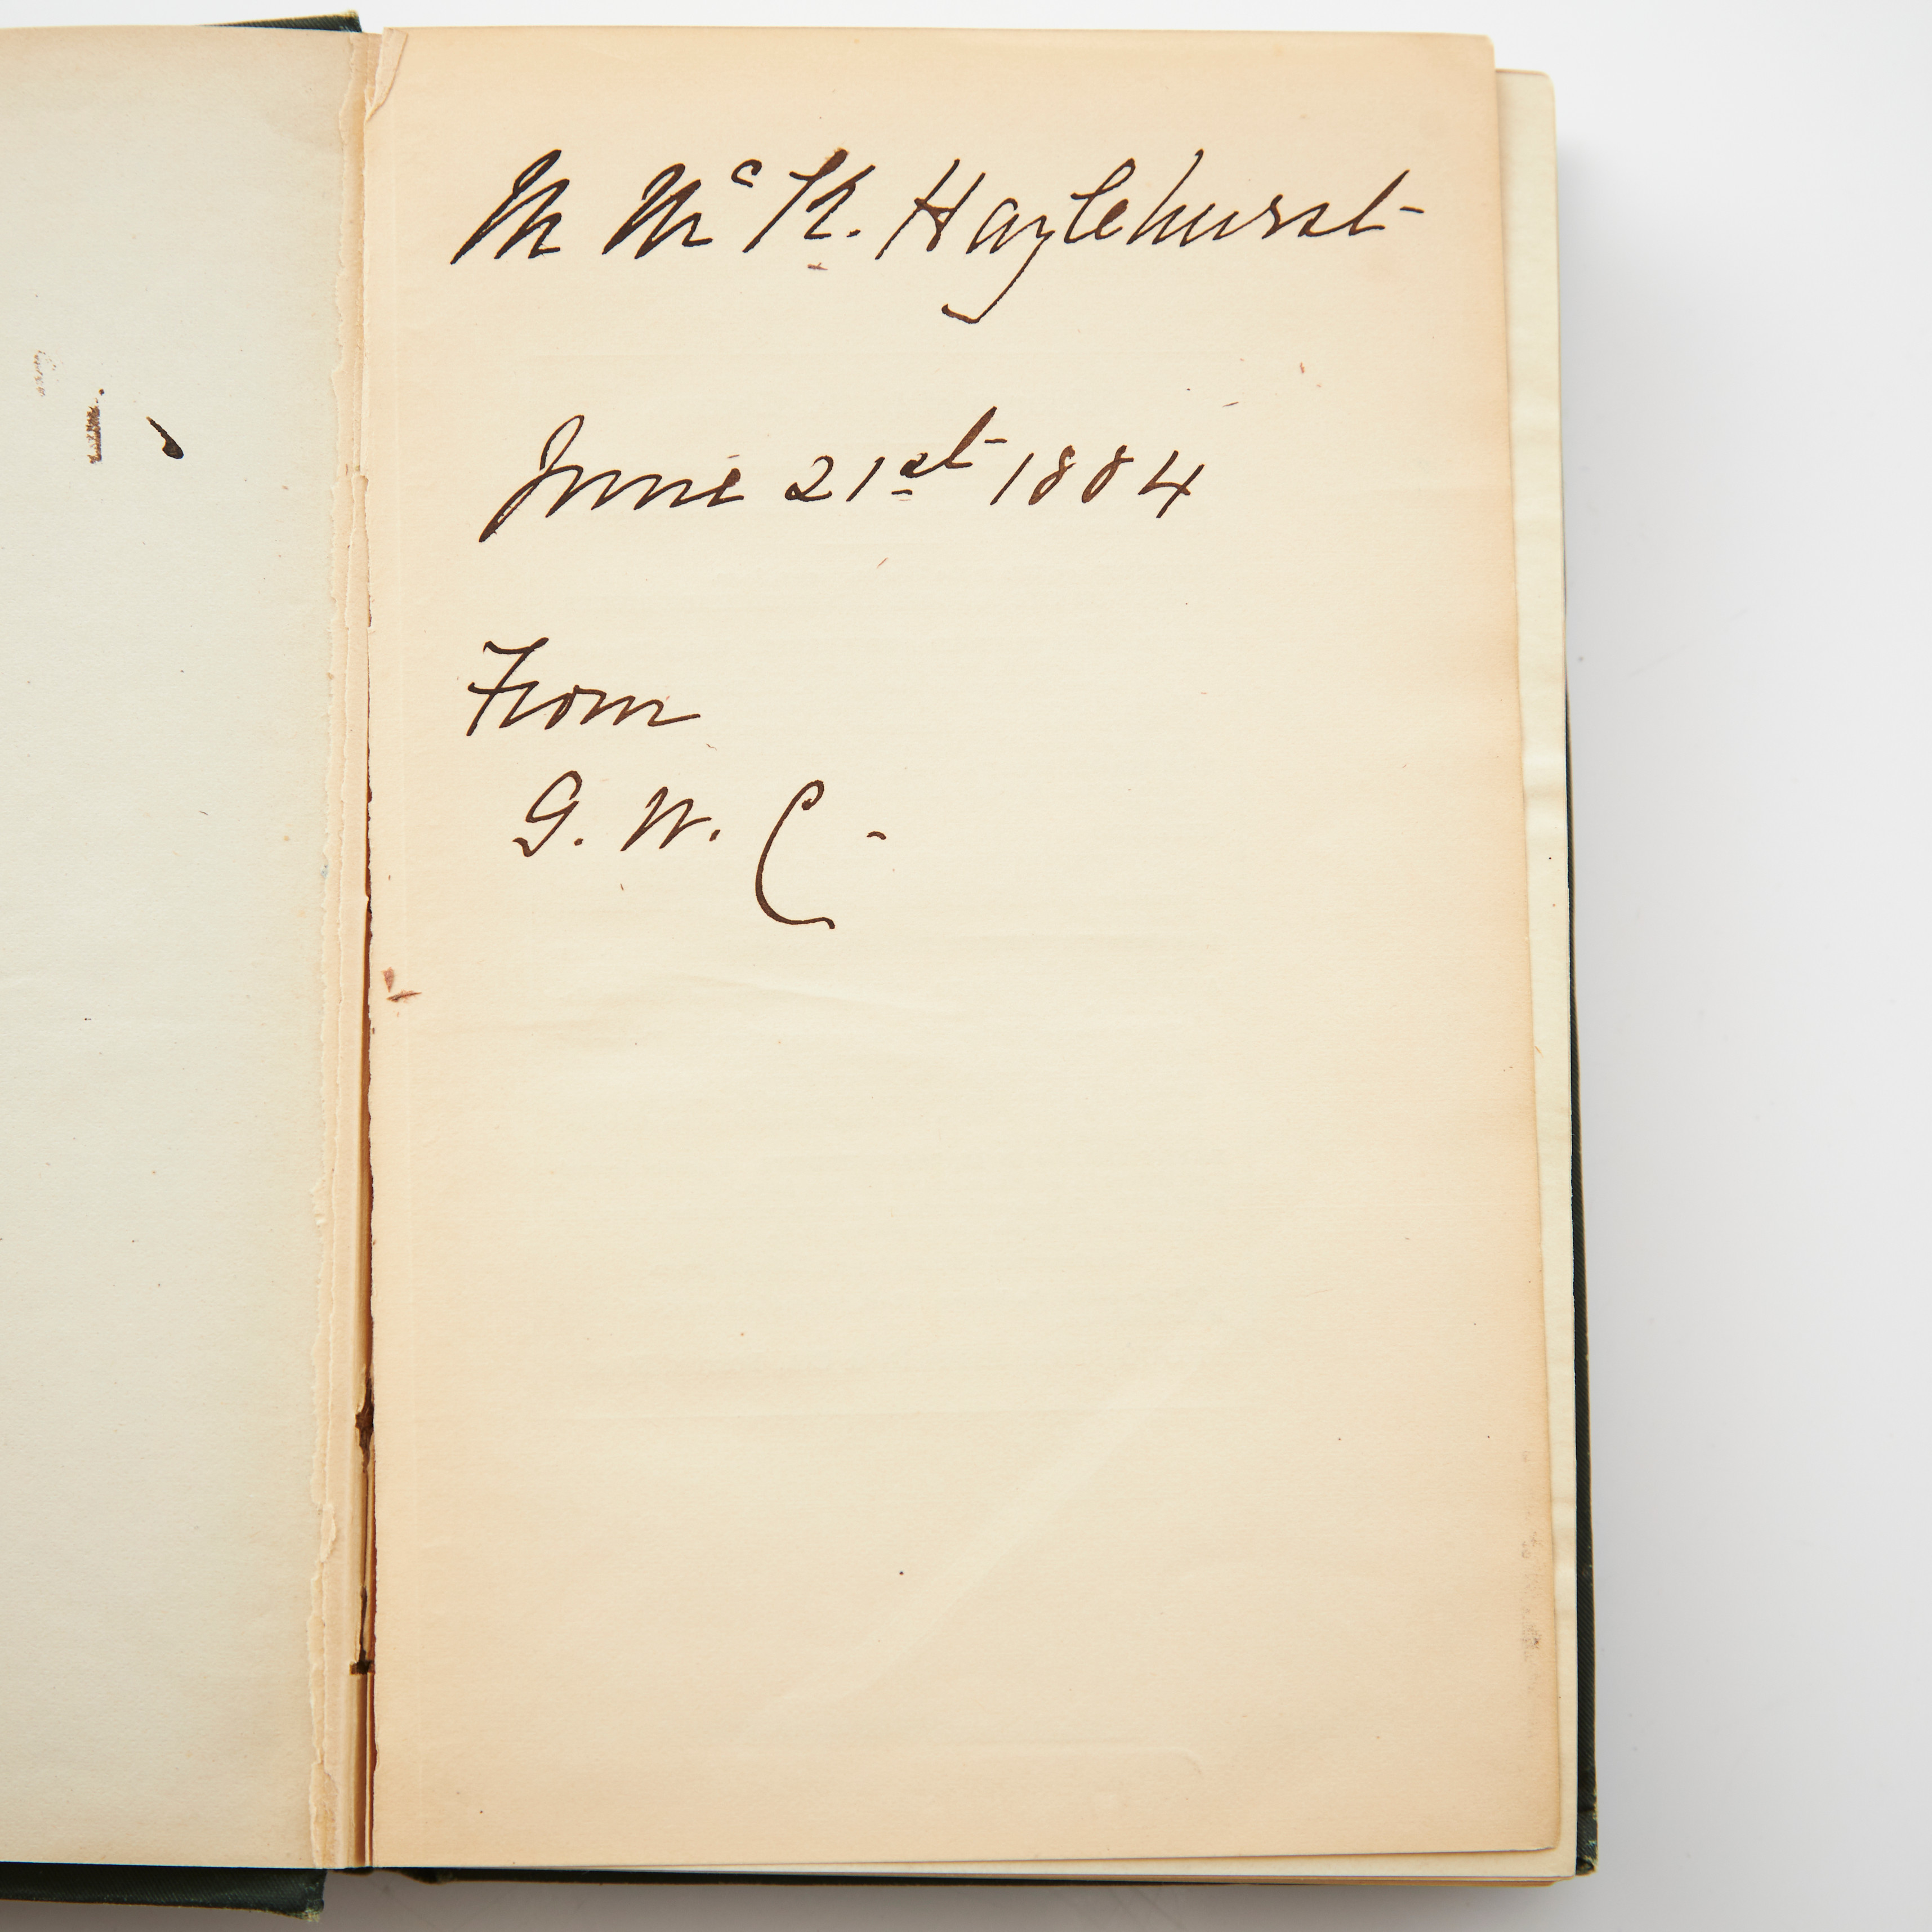 M McK. Hazlehurst
June 21st 1884
From
G. W. C -